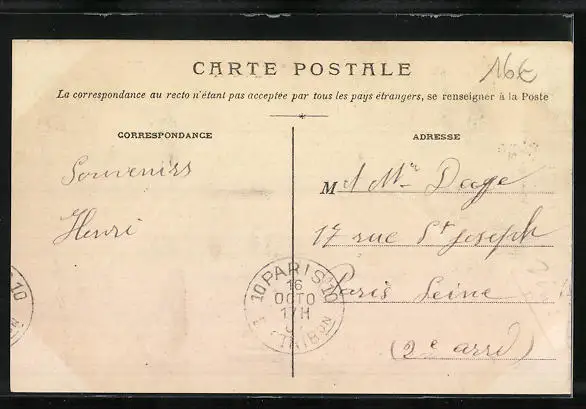 CARTE POSTALE
16€
La correspondance au recto n'étant pas acceptée par tous les pays étrangers, se renseigner à la Poste
CORRESPONDANCE
Souvenirs
Henri
ADRESSE
M
17 rue St Joseph
Paris Seine
(2e arrd)
10 PARIS 10
16
OCTO
17H
10